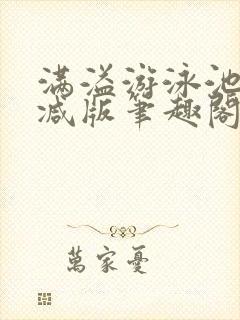 满溢游泳池
减版筆趣閣
萬家憂